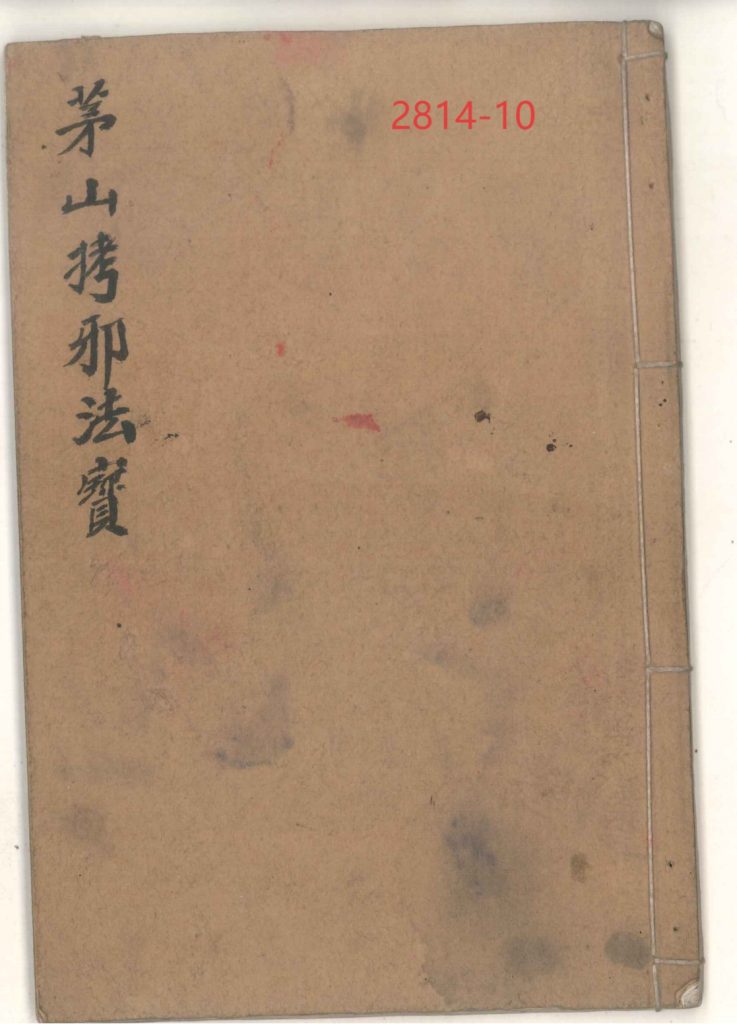 茅山拷邪法寳
2814-10